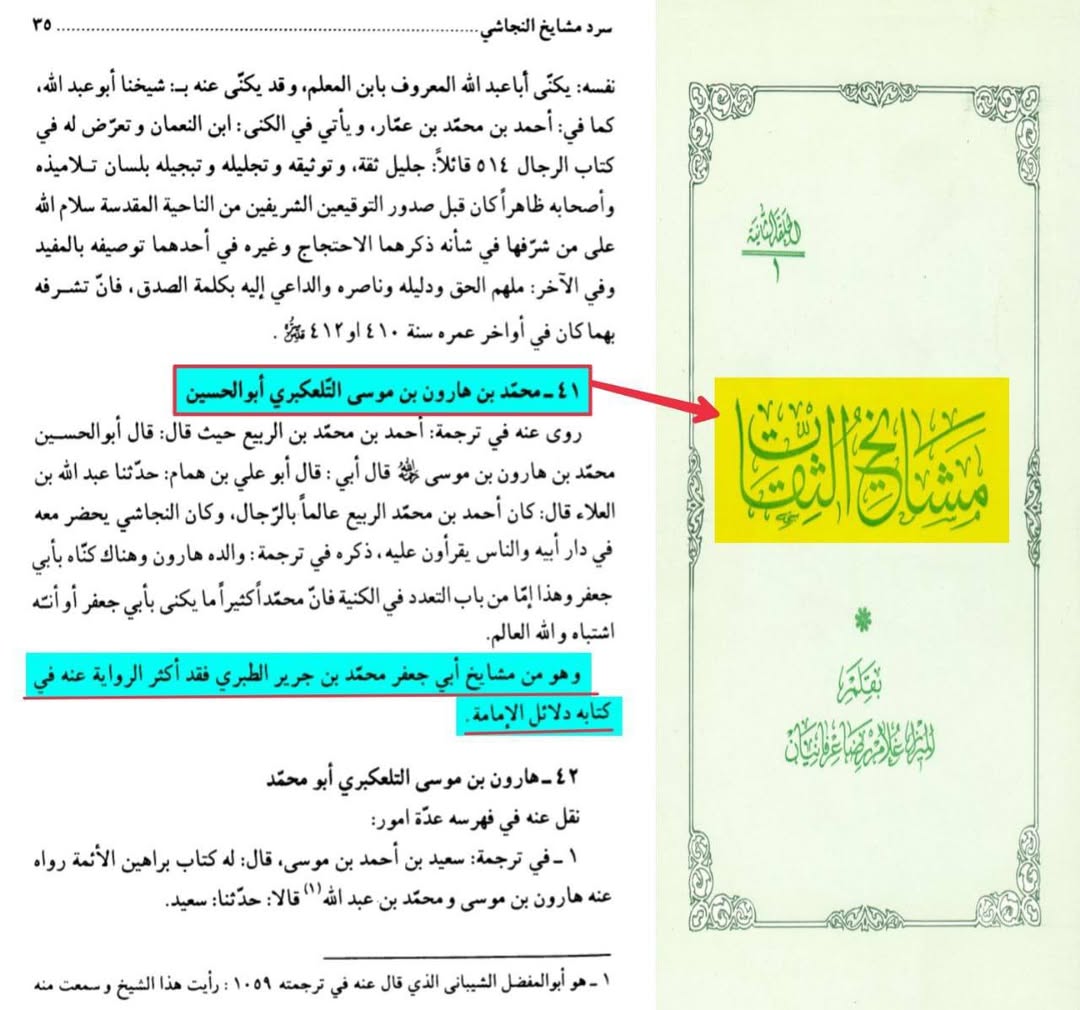 سرد مشايخ النجاشي ........................................................................ ٣٥
نفسه: يكنّى أباعبد الله المعروف بابن المعلم، وقد يكنّى عنه بـ: شيخنا أبوعبد الله،
كما في: أحمد بن محمّد بن عمّار، ويأتي في الكنى: ابن النعمان وتعرّض له في
كتاب الرجال ٥١٤ قائلاً: جليل ثقة، وتوثيقه وتجليله وتبجيله بلسان تـلاميذه
وأصحابه ظاهراً كان قبل صدور التوقيعين الشريفين من الناحية المقدسة سلام الله
على من شرّفها في شأنه ذكرهما الاحتجاج وغيره في أحدهما توصيفه بالمفيد
وفي الآخر: ملهم الحق ودليله وناصره والداعي إليه بكلمة الصدق، فانّ تشـرفه
بهما كان في أواخر عمره سنة ٤١٠ او ٤١٢ .
٤١ ـ محمّد بن هارون بن موسى التّلعكبري أبوالحسين
روى عنه في ترجمة: أحمد بن محمّد بن الربيع حيث قال: قال أبوالحسـين
محمّد بن هارون بن موسى ﷲ قال أبي : قال أبو علي بن همام: حدّثنا عبد الله بن
العلاء قال: كان أحمد بن محمّد الربيع عالماً بالرّجال، وكان النجاشي يحضر معه
في دار أبيه والناس يقرأون عليه، ذكره في ترجمة: والده هارون وهناك كنّاه بأبي
جعفر وهذا إمّا من باب التعدد في الكنية فانّ محمّداً كثيراً ما يكنى بأبي جعفر أو أنـّه
اشتباه والله العالم.
وهو من مشايخ أبي جعفر محمّد بن جرير الطبري فقد أكثر الرواية عنه في
كتابه دلائل الإمامة.
٤٢ ـ هارون بن موسى التلعكبري أبو محمّد
نقل عنه في فهرسه عدّة امور:
١ ـ في ترجمة: سعيد بن أحمد بن موسى، قال: له كتاب براهين الأئمة رواه
عنه هارون بن موسى ومحمّد بن عبد الله (١) قالا: حدّثنا: سعيد.
١ ـ هو أبوالمفضل الشيبانى الذي قال عنه في ترجمته ١٠٥٩ : رأيت هذا الشيخ وسمعت منه
الحلقة الثانية
١
مشايخ الثقات
بقلم
الميرزا غلامرضا عرفانيان